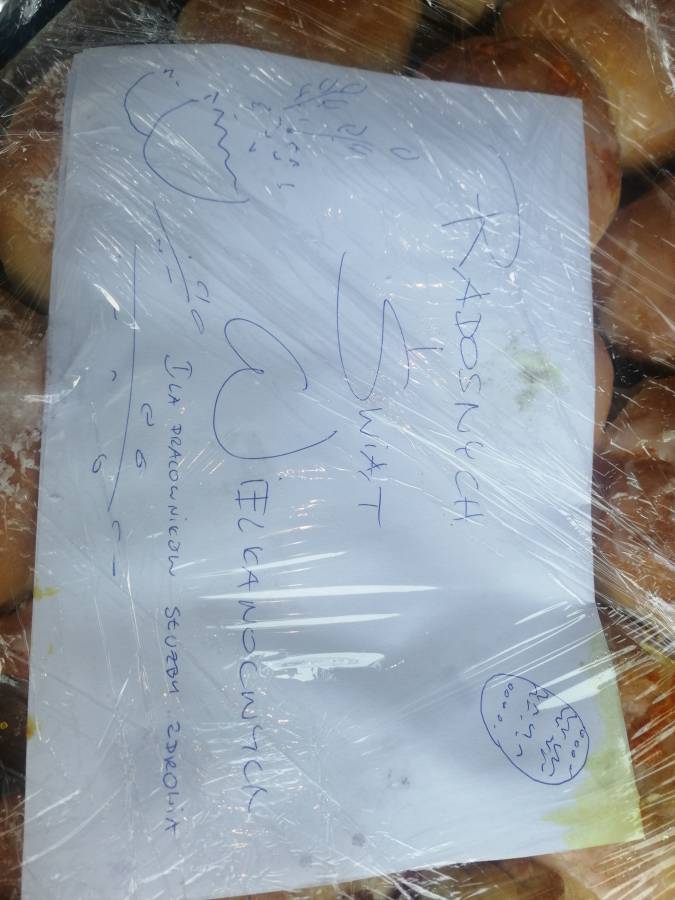 RADOSNYCH
ŚWIĄT
WIELKANOCNYCH
DLA PRACOWNIKÓW SŁUŻBY ZDROWIA